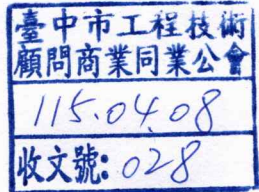 臺中市工程技術
顧問商業同業公會
115.04.08
收文號:028